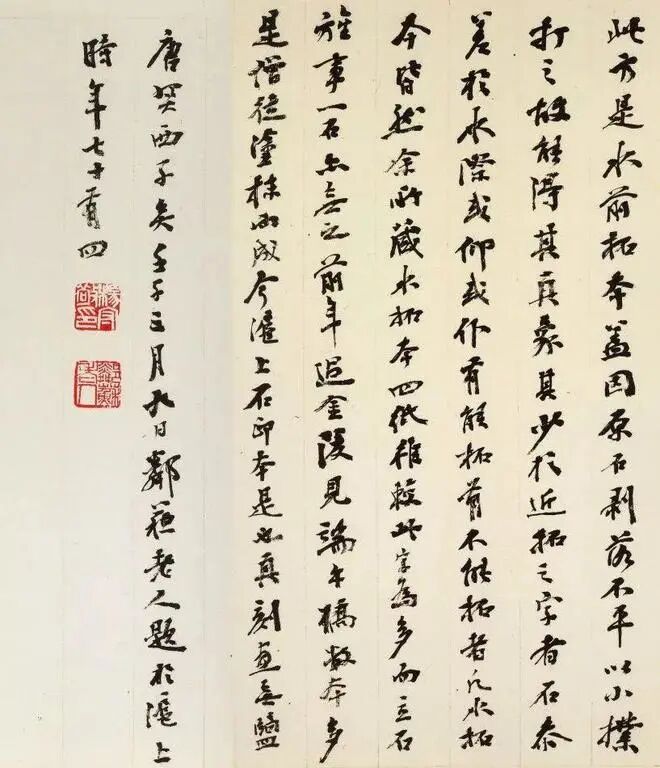 此方是水前拓本蓋因原石剥落不平以小撲
打之故能得其真象其少於近拓之字者石参
差於水際或仰或仆有能拓有不能拓者凡水拓
本皆然余所藏水拓本四紙雖較此字為多而立石
旌事一石亦無之前年過金陵見端午橋數本多
是僧徒塗抹而成今滬上石印本是也真刻畫無鹽
唐突西子矣壬子三月九日鄰蘇老人題於滬上
時年七十有四